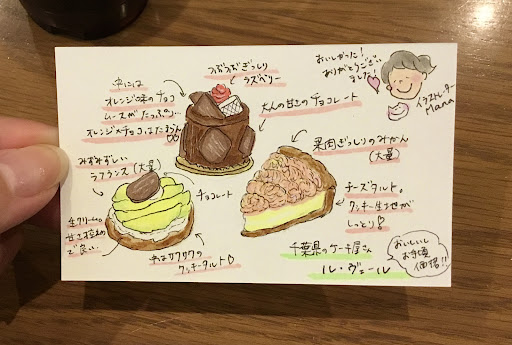 つぶつぶぎっしり
ラズベリー
中には
オレンジ味のチョコ
ムースがたっぷり…
オレンジ×チョコはたまらん
大人の甘さのチョコレート
おいしかった！
ありがとうござい
ました！
イラストレーター
Mana
みずみずしい
ラフランス（大量）
チョコレート
生クリームの
甘さ控えめ
で良い…
中はサクサクの
クッキータルト♡
果肉ぎっしりのみかん
（大量）
チーズタルト。
クッキー生地が
しっとり！
千葉県のケーキ屋さん
ル・ヴェール
おいしいし
お手頃
価格！！